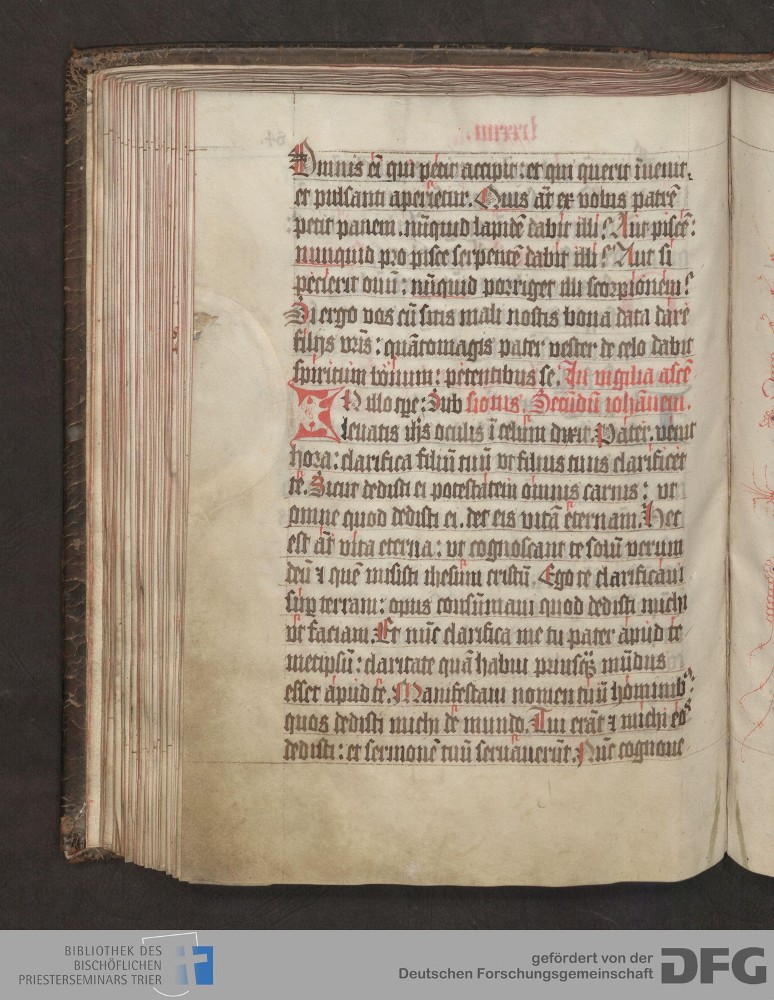 Omnis eī qui petit accipit: et qui querit īuenit,
et pulsanti aperietur. Quis aūt ex vobis patrē
petit panem. nūquid lapidē dabit illi? Aut piscē:
nunquid pro pisce serpentē dabit illi? Aut si
pecierit ouū: nūquid porriget illi scorpionem?
Si ergo vos cū sitis mali nostis bona data dare
filijs vrīs: quātomagis pater vester de celo dabit
spiritum bonum: petentibus se. In vigilia ascē
IN illo tꝑe: Sub sionis. Secūdū iohānem.
leuatis ihs̄ oculis ī celum dixit. Pater. venit
hora: clarifica filiū tuū vt filius tuus clarificet
te. Sicut dedisti ei potestatem omnis carnis: vt
omne quod dedisti ei. det eis vitā eternam. Hec
est aūt vita eterna: vt cognoscant te solū verum
deū ⁊ quē misisti ihesum cristū. Ego te clarificaui
suꝑ terram: opus consūmaui quod dedisti michi
vt faciam. Et nūc clarifica me tu pater apud te
metipsū: claritate quā habui priusqꝫ mūdus
esset apud te. Manifestaui nomen tuū hominibꝰ:
quos dedisti michi de mundo. Tui erāt ⁊ michi eos
dedisti: et sermonē tuū seruauerūt. Nūc cognoue
BIBLIOTHEK DES
BISCHÖFLICHEN
PRIESTERSEMINARS TRIER
gefördert von der
Deutschen Forschungsgemeinschaft
DFG